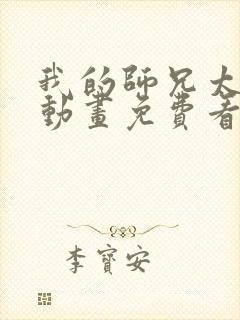 我的師兄太
動畫免費看
李寶安